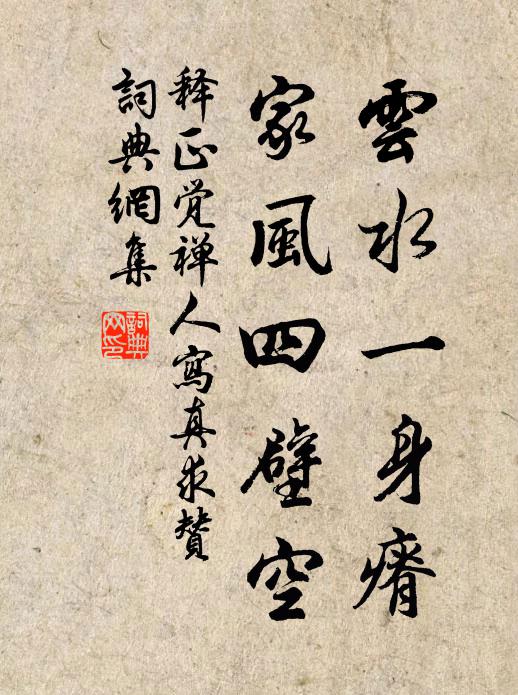 雲水一身瘠
家風四壁空
释正觉禅人寫真求贊
詞典網集
詞典
网印